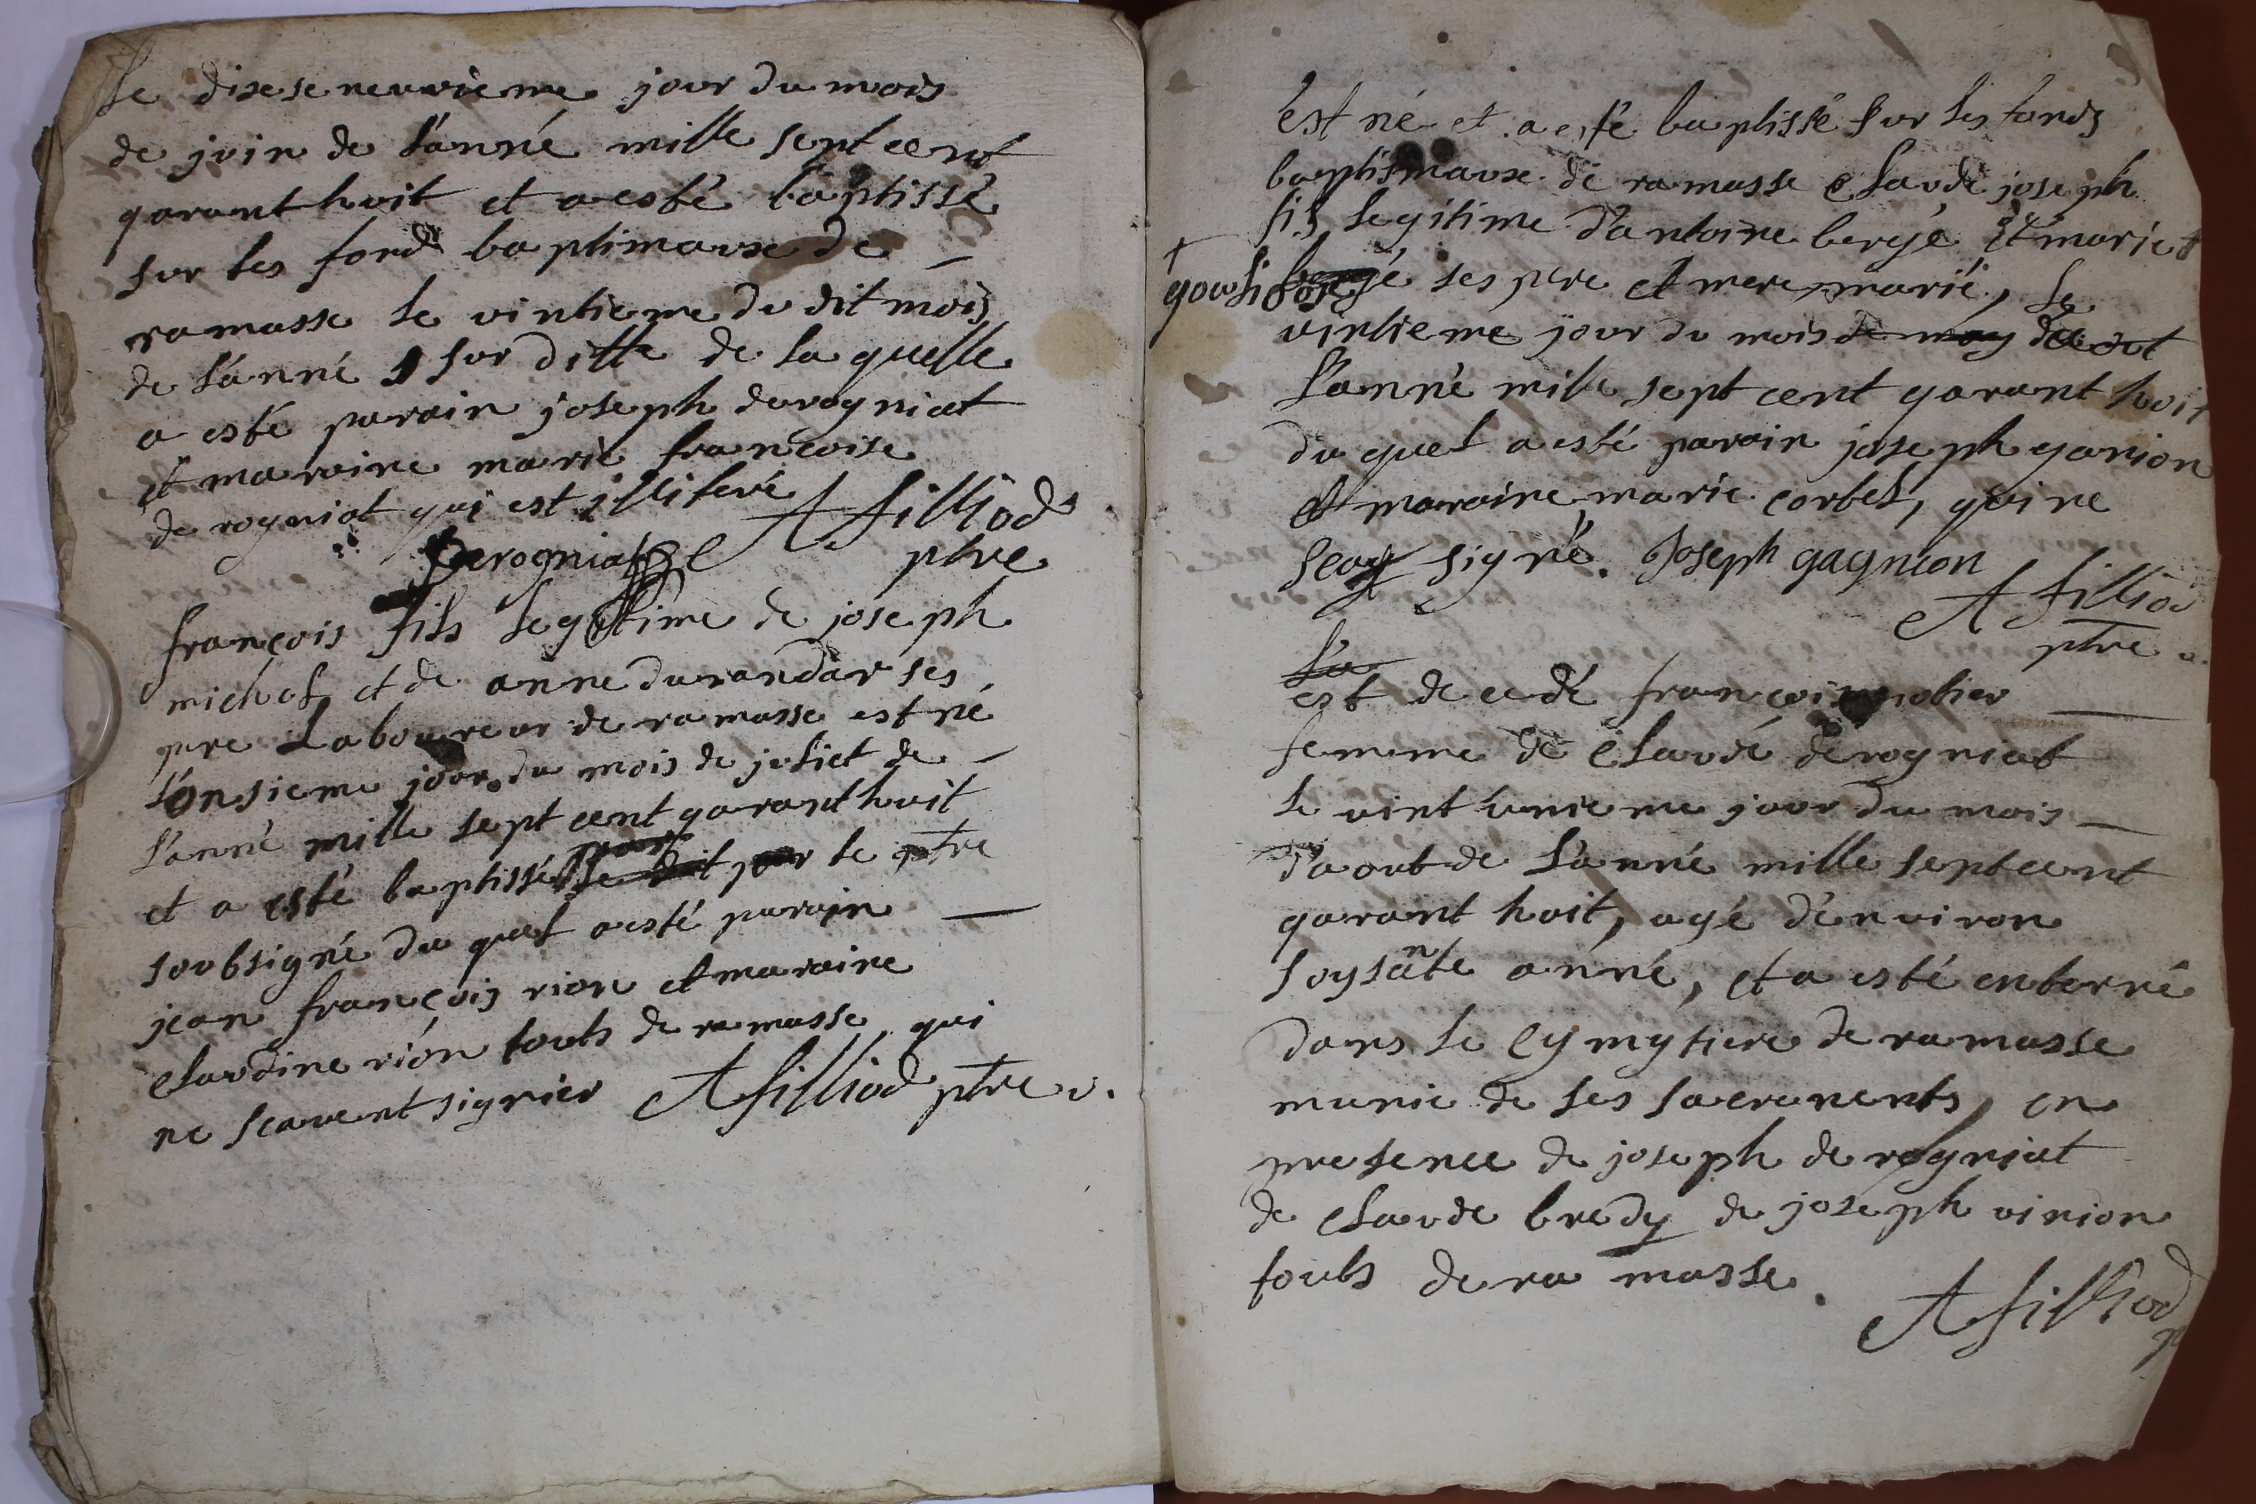 Le diseseneuvieme jour du mois
de juin de l'anné mille sept cent
qarant huit et a esté baptissé
sur les fond baptimaux de
ramasse le vintieme du dit mois
de l'anné surditte de la quelle
a esté parain joseph derogniat
et maraine marie françoise
de rogniat qui est illiteré
Derogniat A filliod
ptre
françois fils legitime de joseph
michel et de anne durandar ses
pre Laboureur de ramasse est né
l'onsieme jour du mois de juliet de
l'anné mille sept cent qarant huit
et a esté baptissé par le ptre
soubsigné du quel a esté parain
jean françois rion et maraine
claudine rion touts de ramasse qui
ne scavent signier A filliod ptre v.
est né et a esté baptissé sur les fonds
baptismaux de ramasse claude joseph
fils legitime d'antoine bergé et marie
ses pere et mere marié, Le
vintieme jour du mois
L'anné mille sept cent qarant huit
du quel a esté parain joseph ganion
et maraine marie corbet, qui ne
scay signé. Joseph gagnion
A filliod
ptre
est decedé
femme de claude derogniat
le vint unieme jour du mois
d'aout de l'anné mille sept cent
qarant huit, agé d'environ
soysante anné, et a esté enterré
dans le cymytiere de ramasse
munie de ses sacrements, en
presence de joseph derogniat
de claude bredy de joseph vinion
touts de ramasse.
A filliod